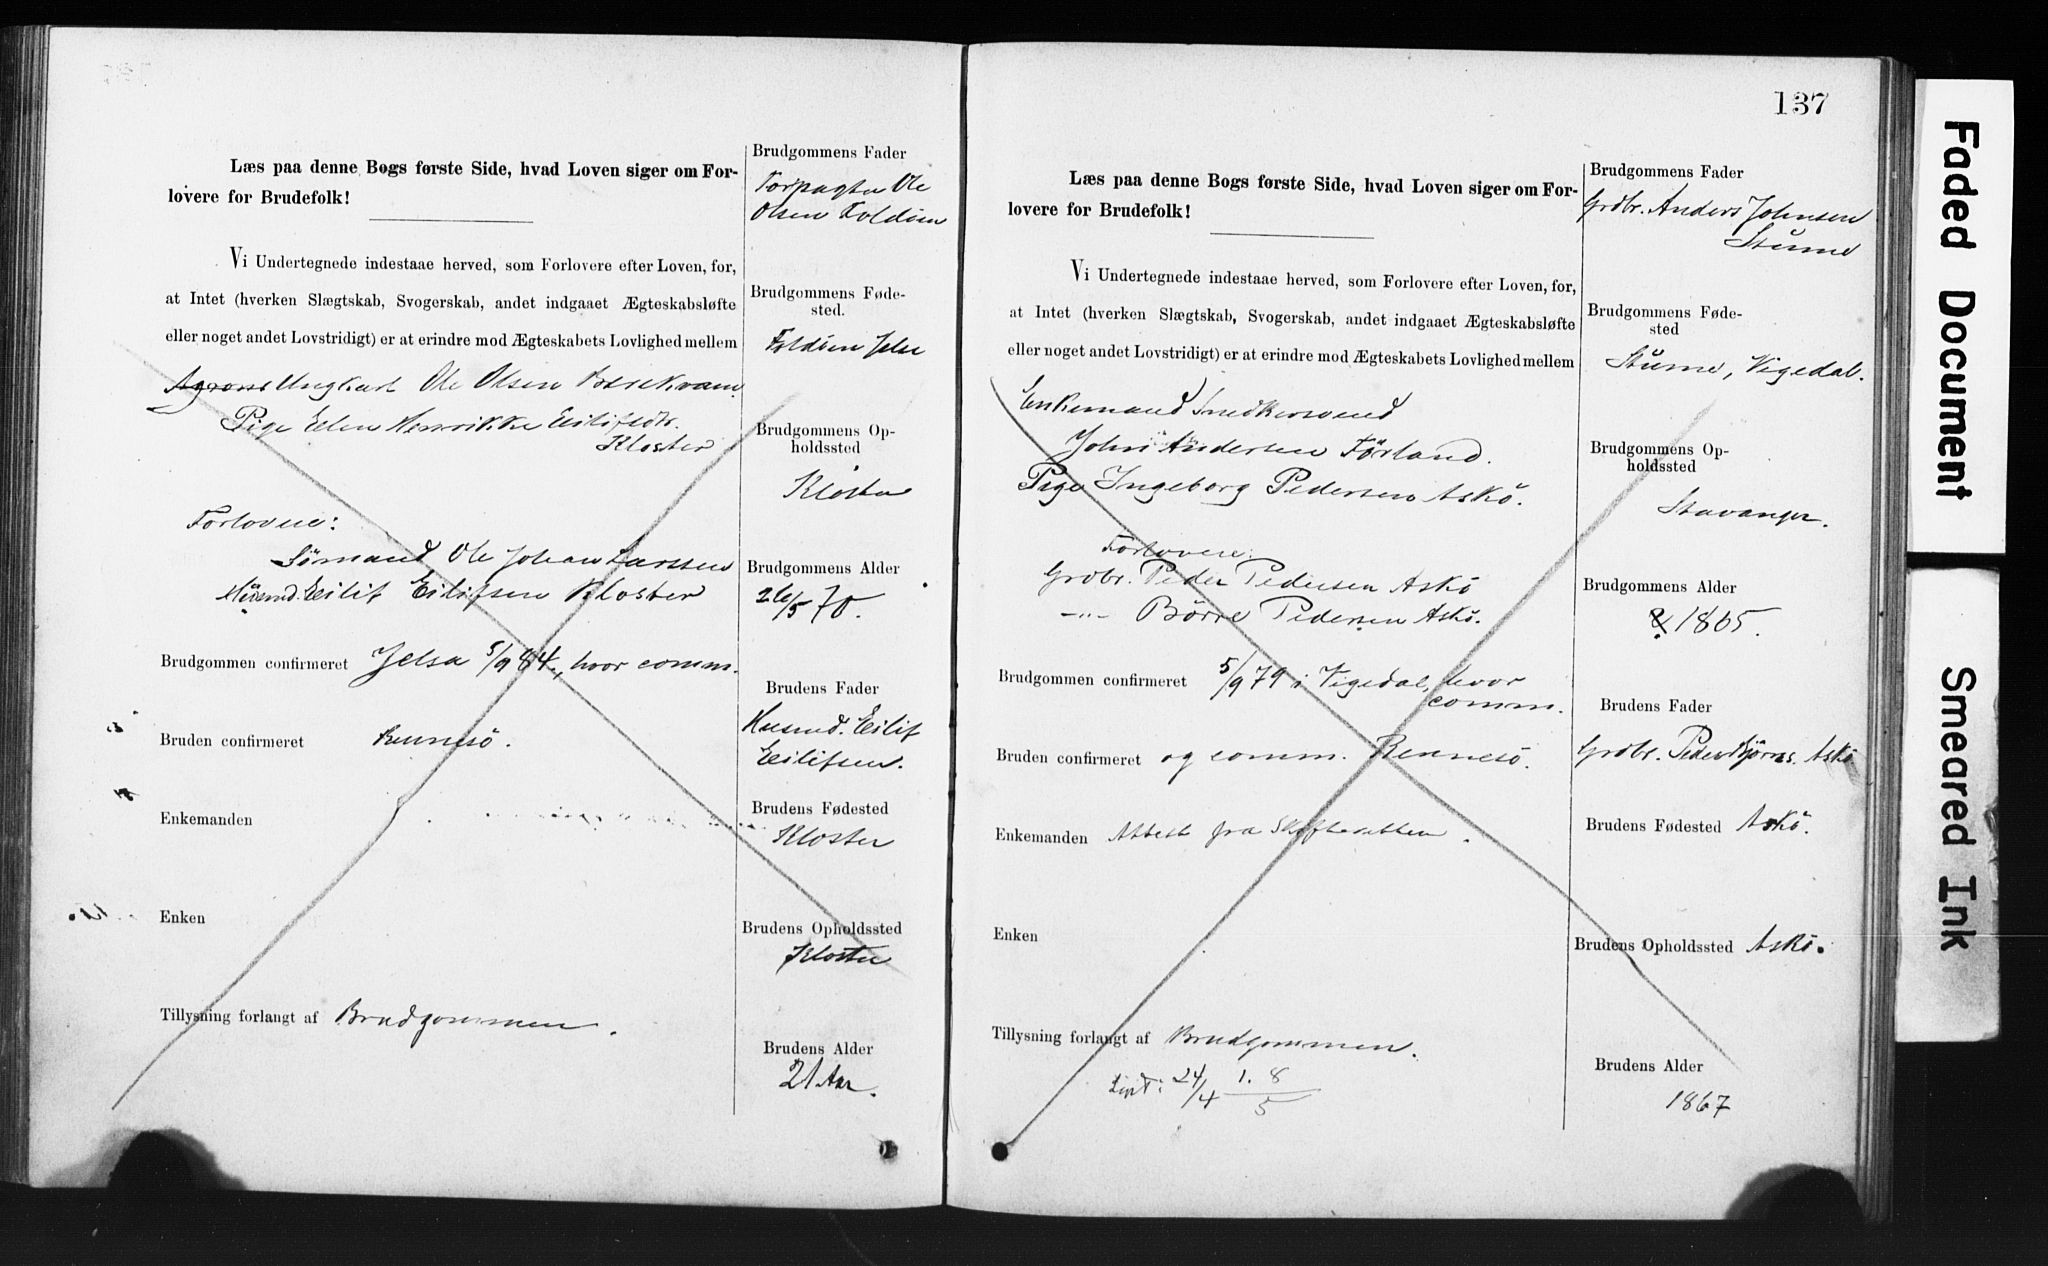 Læs paa denne Bogs første Side, hvad Loven siger om For-
lovere for Brudefolk!
Vi Undertegnede indestaae herved, som Forlovere efter Loven, for,
at Intet (hverken Slægtskab, Svogerskab, andet indgaaet Ægteskabsløfte
eller noget andet Lovstridigt) er at erindre mod Ægteskabets Lovlighed mellem
Ungkarl Ole Olsen
Pige Elen Henrikke Eilifsdtr.
Kloster
Forlovere:
Ole Johan Larssen
Husmd. Eilif Eilifsen Kloster
Brudgommen confirmeret Jelsa 5/9 84, hvor comm.
Bruden confirmeret Rennesö.
Enkemanden
Enken
Tillysning forlangt af Brudgommen.
Brudgommens Fader
Forpagter Ole
Olsen Foldöen
Brudgommens Føde-
sted.
Foldöen Jelse
Brudgommens Op-
holdssted
Kloster
Brudgommens Alder
26/5 70.
Brudens Fader
Husmd. Eilif
Eilifsen.
Brudens Fødested
Kloster
Brudens Opholdssted
Kloster
Brudens Alder
21 Aar.
137
Læs paa denne Bogs første Side, hvad Loven siger om For-
lovere for Brudefolk!
Vi Undertegnede indestaae herved, som Forlovere efter Loven, for,
at Intet (hverken Slægtskab, Svogerskab, andet indgaaet Ægteskabsløfte
eller noget andet Lovstridigt) er at erindre mod Ægteskabets Lovlighed mellem
Enkemand Snedkersvend
John Andersen Förland.
Pige Ingeborg Pedersen Askö.
Forlovere:
Grdbr. Peder Pedersen Askö
—"— Börre Pedersen Askö.
Brudgommen confirmeret 5/9 79 i Vigedal, hvor
comm.
Bruden confirmeret og comm. Rennesö.
Enkemanden Attest fra Skifteretten.
Enken
Tillysning forlangt af Brudgommen.
Lyst: 24/4 1. 8/5
Brudgommens Fader
Grdbr. Anders Johnsen
Stume
Brudgommens Føde-
sted
Stume, Vigedal.
Brudgommens Op-
holdssted
Stavanger.
Brudgommens Alder
1865.
Brudens Fader
Grdbr. Peder Bjørns. Askö
Brudens Fødested Askö.
Brudens Opholdssted Askö.
Brudens Alder
1867
Faded Document
Smeared Ink